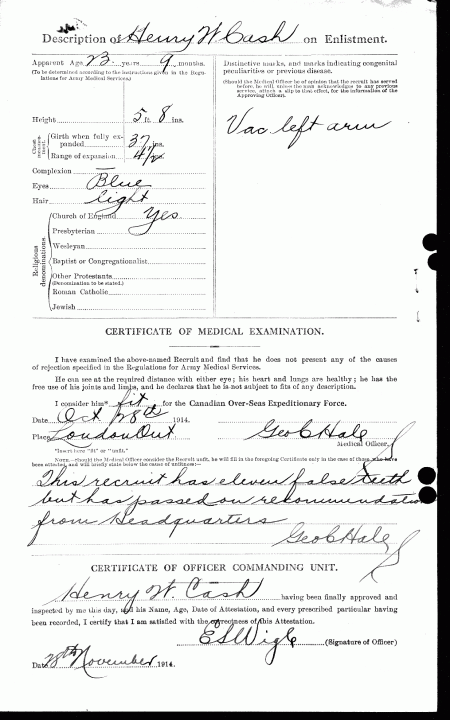 Description of Henry W Cash on Enlistment.
Apparent Age 23 years 9 months.
(To be determined according to the instructions given in the Regulations for Army Medical Services.)
Distinctive marks, and marks indicating congenital peculiarities or previous disease.
(Should the Medical Officer be of opinion that the recruit has served before, he will, unless the man acknowledges to any previous service, attach a slip to that effect, for the information of the Approving Officer).
Height 5 ft. 8 ins.
Vac. left arm
Chest measurement.
Girth when fully expanded 37 ins.
Range of expansion 4½ ins.
Complexion
Eyes Blue
Hair light
Religious denominations.
Church of England Yes
Presbyterian
Wesleyan
Baptist or Congregationalist
Other Protestants
(Denomination to be stated.)
Roman Catholic
Jewish
CERTIFICATE OF MEDICAL EXAMINATION.
I have examined the above-named Recruit and find that he does not present any of the causes
of rejection specified in the Regulations for Army Medical Services.
He can see at the required distance with either eye; his heart and lungs are healthy; he has the
free use of his joints and limbs, and he declares that he is not subject to fits of any description.
I consider him* fit for the Canadian Over-Seas Expeditionary Force.
Date Oct 28th 1914.
Place London Ont
Geo C Hale
Medical Officer.
*Insert here "fit" or "unfit."
NOTE.—Should the Medical Officer consider the Recruit unfit, he will fill in the foregoing Certificate only in the case of those who have
been attested, and will briefly state below the cause of unfitness:—
This recruit has eleven false teeth
but has passed on recommendation
from Headquarters
Geo C Hale
CERTIFICATE OF OFFICER COMMANDING UNIT.
Henry W. Cash having been finally approved and
inspected by me this day, and his Name, Age, Date of Attestation, and every prescribed particular having
been recorded, I certify that I am satisfied with the correctness of this Attestation.
E S Wigle (Signature of Officer)
Date 28th November 1914.